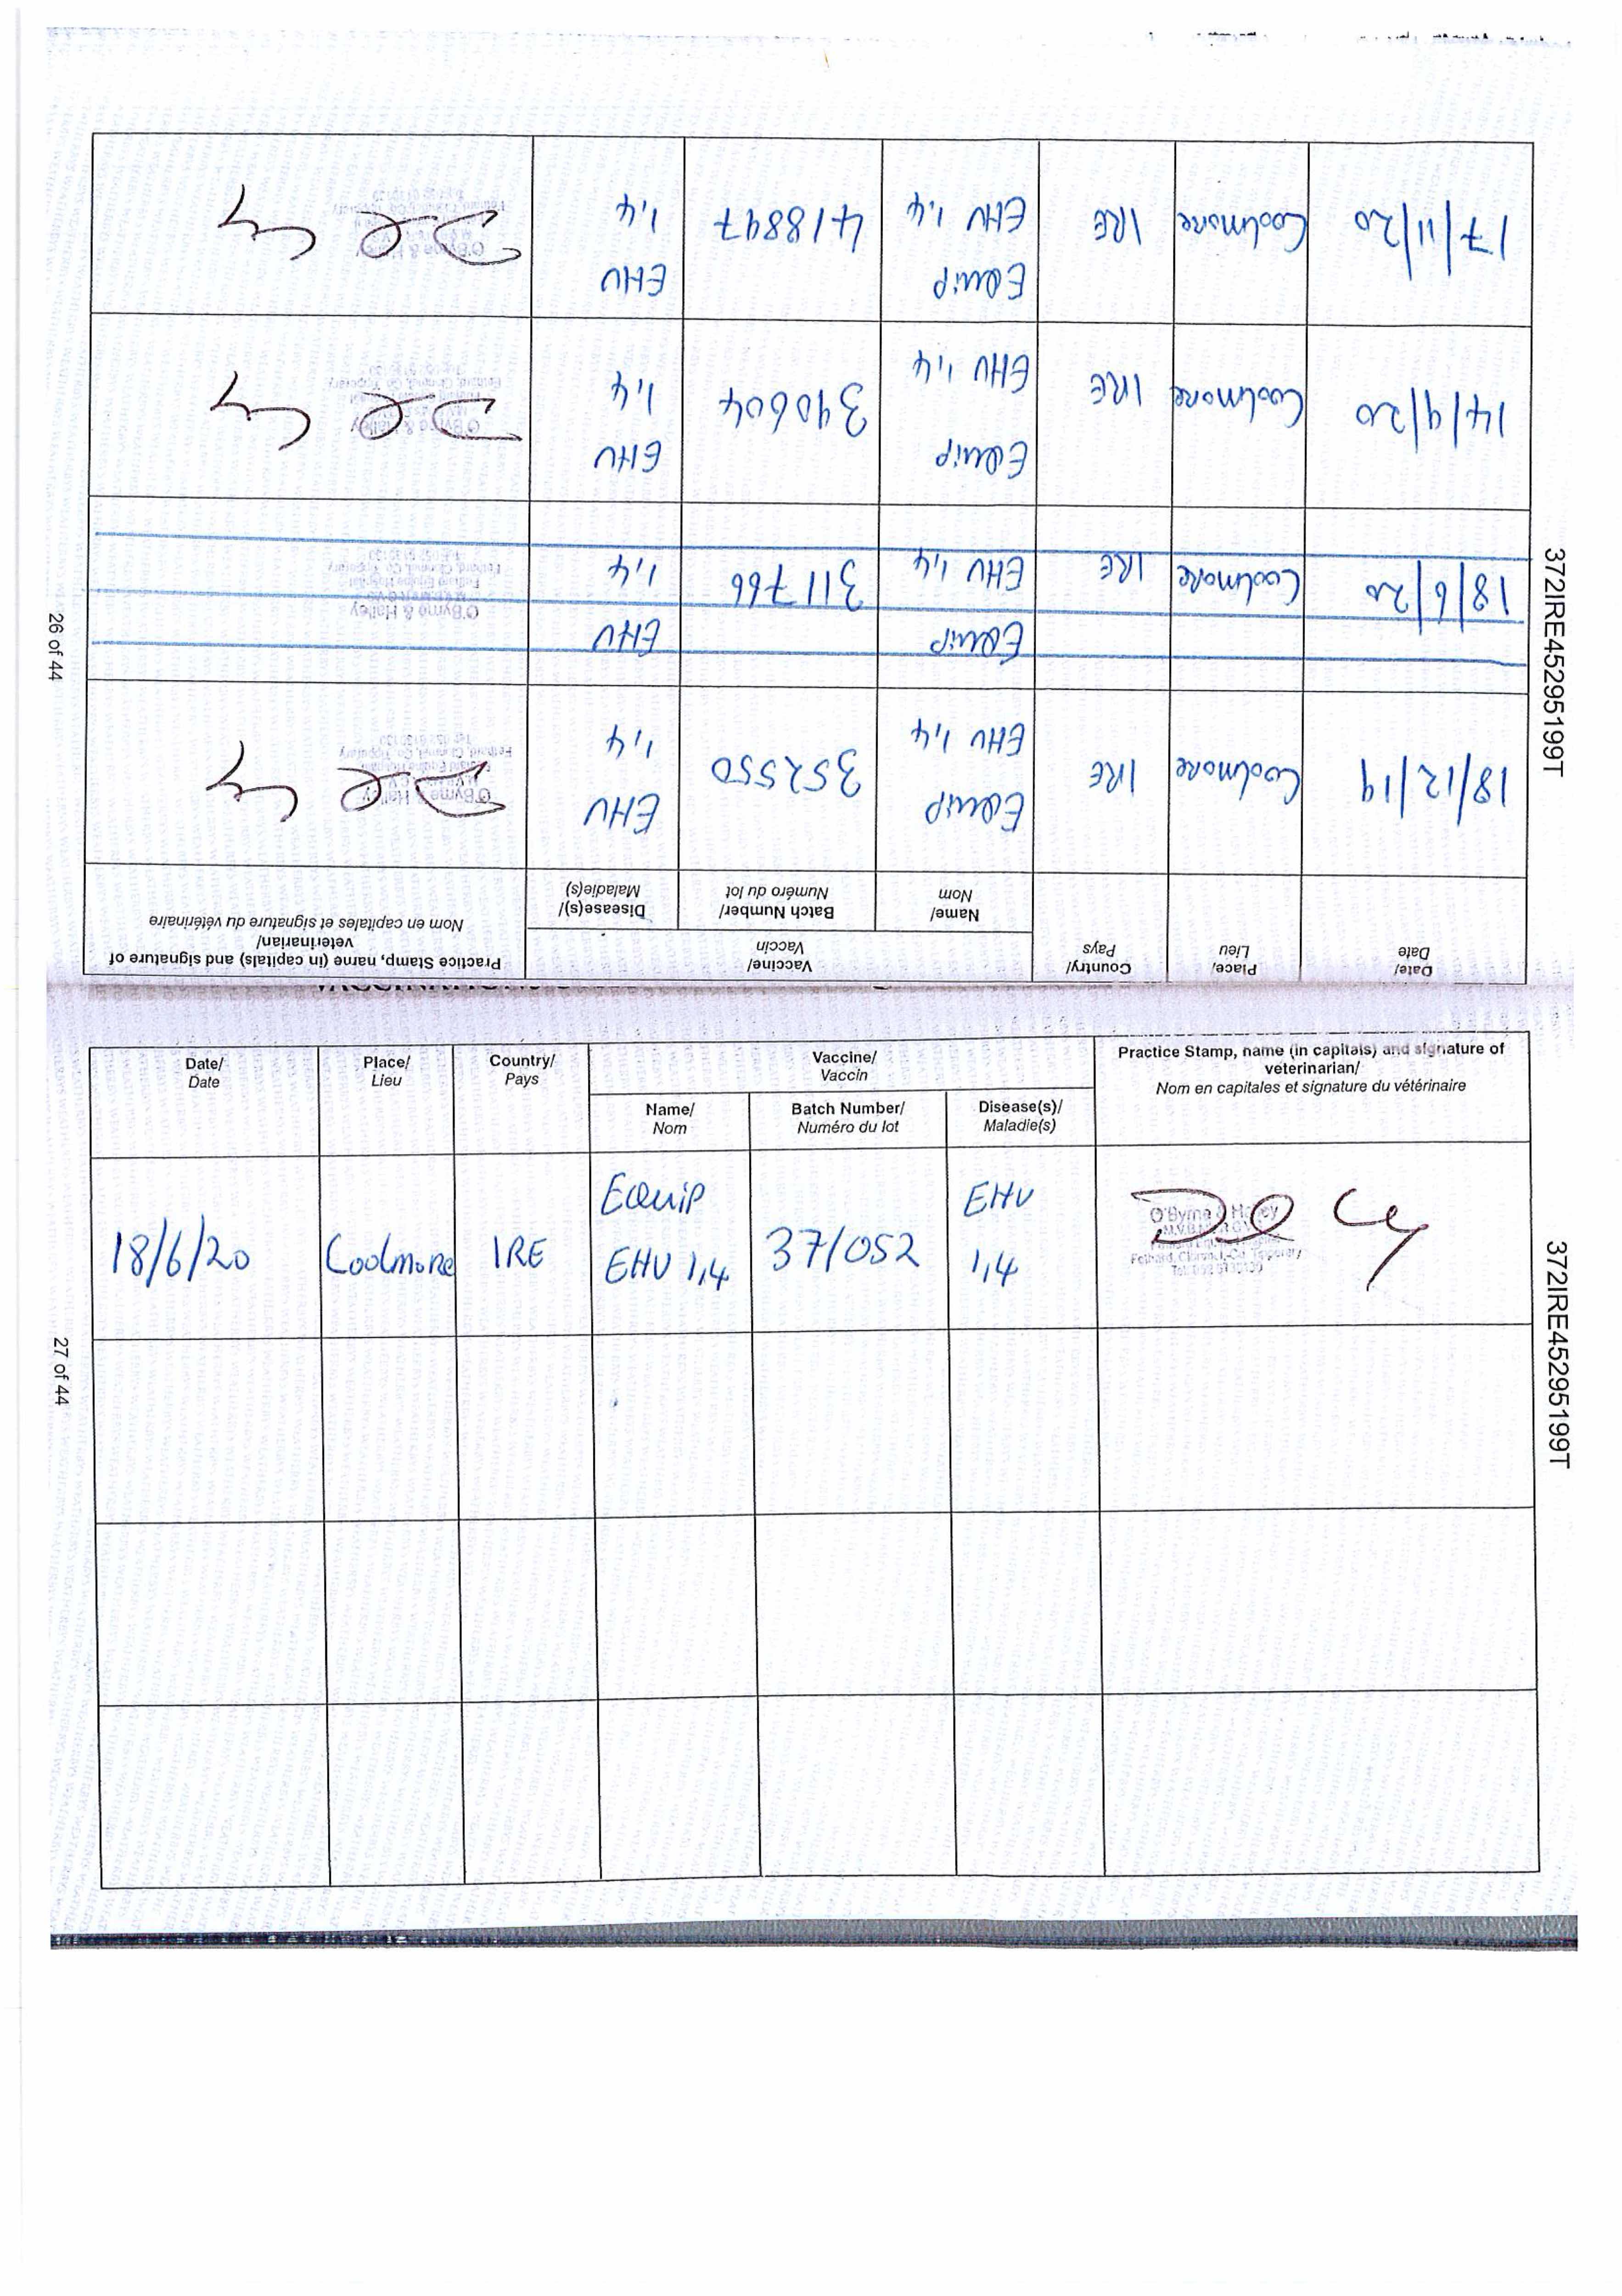 Date/
Date
Place/
Lieu
Country/
Pays
Vaccine/
Vaccin
Name/
Nom
Batch Number/
Numéro du lot
Disease(s)/
Maladie(s)
Practice Stamp, name (in capitals) and signature of
veterinarian/
Nom en capitales et signature du vétérinaire
18/12/19
Coolmore
IRE
Equip
EHV 1,4
352550
EHV
1,4
O'Byrne & Halley
Fethard, Clonmel, Co. Tipperary
18/6/20
Coolmore
IRE
Equip
EHV 1,4
311766
EHV
1,4
O'Byrne & Halley
Fethard Equine Hospital
Fethard, Clonmel, Co. Tipperary
14/9/20
Coolmore
IRE
Equip
EHV 1,4
390604
EHV
1,4
O'Byrne & Halley
Fethard, Clonmel, Co. Tipperary
17/11/20
Coolmore
IRE
Equip
EHV 1,4
418897
EHV
1,4
O'Byrne & Halley
372IRE45295199T
26 of 44
Date/
Date
Place/
Lieu
Country/
Pays
Vaccine/
Vaccin
Name/
Nom
Batch Number/
Numéro du lot
Disease(s)/
Maladie(s)
Practice Stamp, name (in capitals) and signature of
veterinarian/
Nom en capitales et signature du vétérinaire
18/6/20
Coolmore
IRE
Equip
EHV 1,4
371052
EHV
1,4
O'Byrne & Halley
Fethard, Clonmel, Co. Tipperary
372IRE45295199T
27 of 44